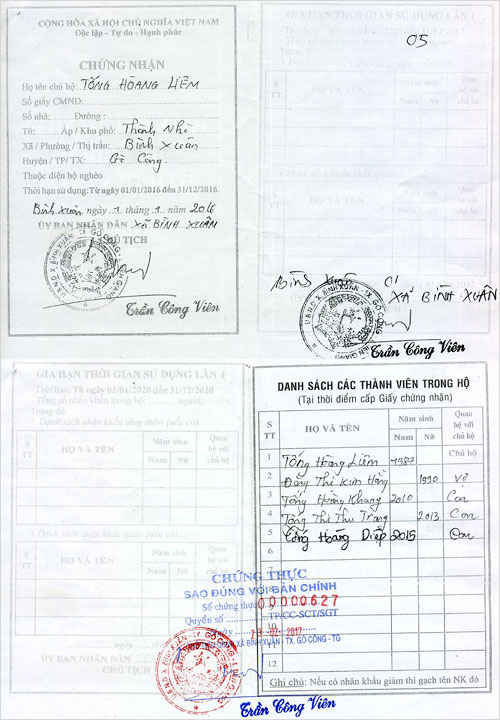 CỘNG HÒA XÃ HỘI CHỦ NGHĨA VIỆT NAM
Độc lập - Tự do - Hạnh phúc
CHỨNG NHẬN
Họ tên chủ hộ: TỐNG HOÀNG LIÊM
Số giấy CMND:
Số nhà: Đường :
Tổ: Ấp / Khu phố: Thành Nhì
Xã / Phường / Thị trấn: Bình Xuân
Huyện / TP/ TX: Gò Công.
Thuộc diện hộ nghèo
Thời hạn sử dụng: Từ ngày 01/01/2016 đến 31/12/2016.
Bình Xuân, ngày .1. tháng .1. năm 2016
ỦY BAN NHÂN DÂN XÃ BÌNH XUÂN
CHỦ TỊCH
Trần Công Viên
GIA HẠN THỜI GIAN SỬ DỤNG LẦN 1
05
S TT
HỌ VÀ TÊN
Năm sinh
Nam Nữ
Quan hệ với chủ hộ
Bình Xuân 01
XÃ BÌNH XUÂN
Trần Công Viên
GIA HẠN THỜI GIAN SỬ DỤNG LẦN 4
Thời hạn: Từ ngày 01/01/2020 đến 31/12/2020
Tổng số nhân khẩu trong hộ: người;
Trong đó:
- Danh sách nhân khẩu tăng thêm (nếu có):
S TT
HỌ VÀ TÊN
Năm sinh
Nam Nữ
Quan hệ với chủ hộ
HỌ VÀ TÊN
Năm sinh
Nam Nữ
Quan hệ với chủ hộ
ỦY BAN NHÂN DÂN
CHỦ TỊCH
DANH SÁCH CÁC THÀNH VIÊN TRONG HỘ
(Tại thời điểm cấp Giấy chứng nhận)
S TT
HỌ VÀ TÊN
Năm sinh
Nam Nữ
Quan hệ với chủ hộ
1 Tống Hoàng Liêm 1987 Chủ hộ
2 Đặng Thị Kim Hằng 1990 Vợ
3 Tống Hoàng Khang 2010 Con
4 Tống Thị Thu Trang 2013 Con
5 Tống Hoàng Diệp 2015 Con
6
7
8
9
10
11
12
CHỨNG THỰC
SAO ĐÚNG VỚI BẢN CHÍNH
Số chứng thực 00000627
Quyển số TP/CC-SCT/SGT
Ngày 02. 2017
XÃ BÌNH XUÂN - TX. GÒ CÔNG - TG
Ghi chú: Nếu có nhân khẩu giảm thì gạch tên NK đó
Trần Công Viên